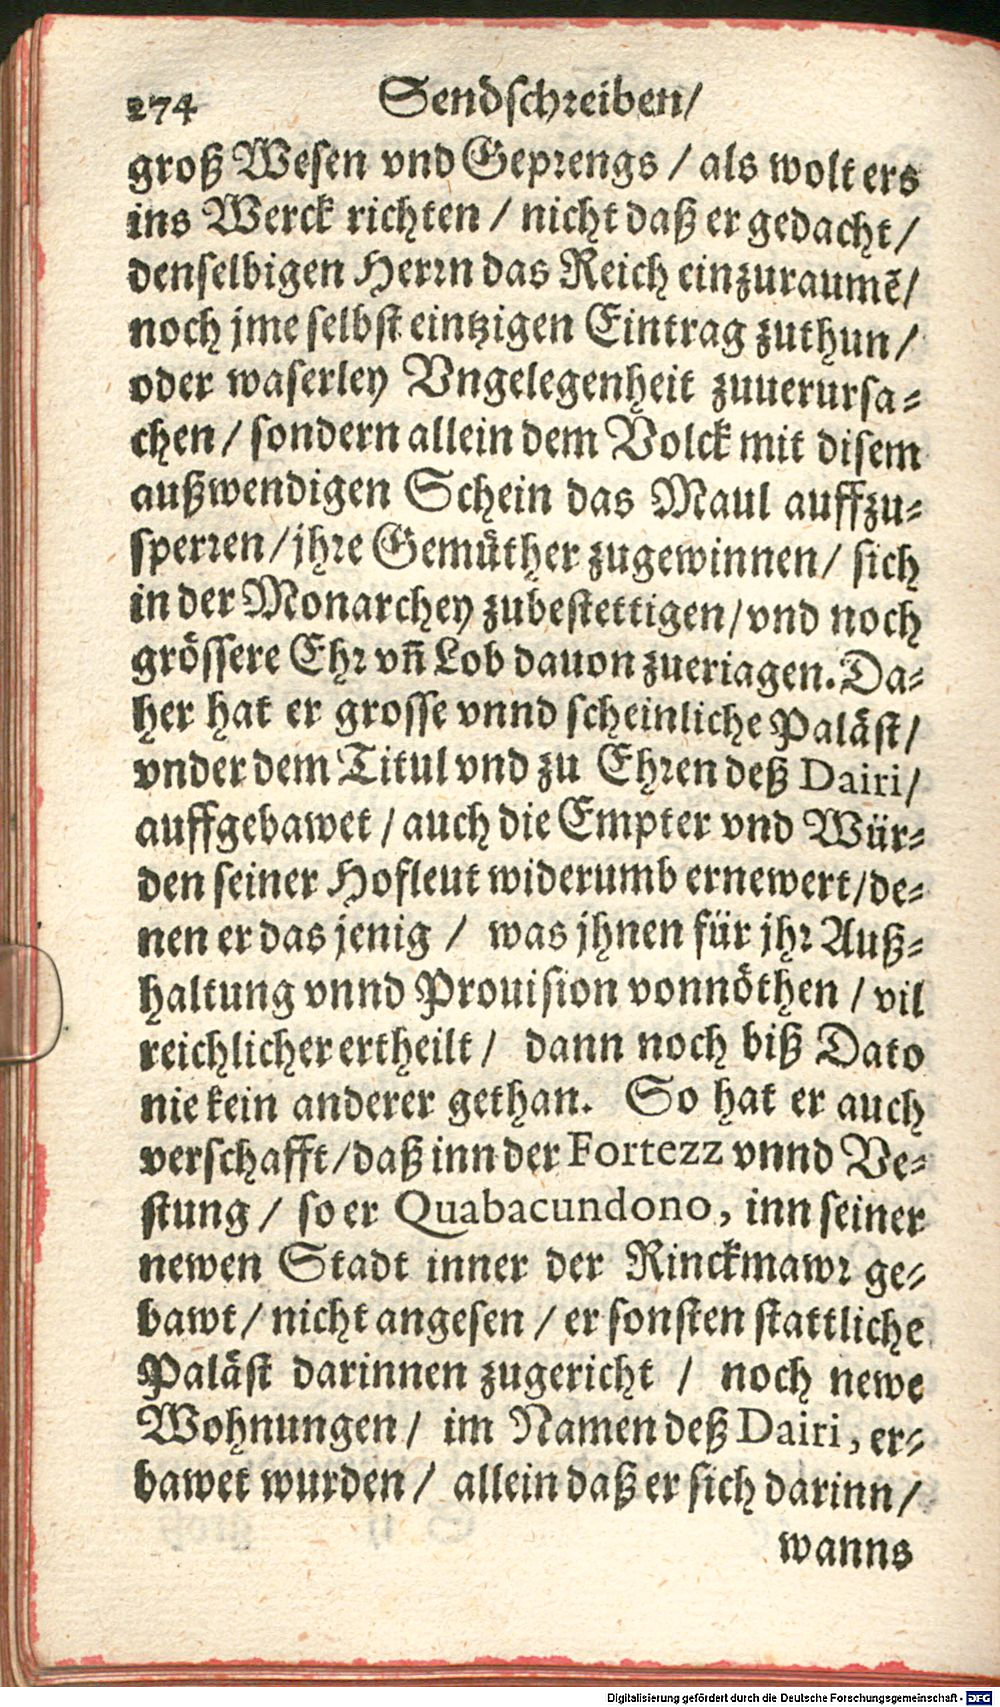 274 Sendschreiben/
groß Wesen vnd Geprengs / als wolt ers
ins Werck richten / nicht daß er gedacht/
denselbigen Herrn das Reich einzuraumẽ/
noch jme selbst eintzigen Eintrag zuthun/
oder waserley Vngelegenheit zuuerursa-
chen/ sondern allein dem Volck mit disem
außwendigen Schein das Maul auffzu-
sperren/jhre Gemüther zugewinnen/ sich
in der Monarchey zubestettigen/vnd noch
grössere Ehr vñ Lob dauon zueriagen. Da-
her hat er grosse vnnd scheinliche Paläst/
vnder dem Titul vnd zu Ehren deß Dairi/
auffgebawet/auch die Empter vnd Wür-
den seiner Hofleut widerumb ernewert/de-
nen er das jenig / was jhnen für jhr Auß-
haltung vnnd Prouision vonnöthen / vil
reichlicher ertheilt/ dann noch biß Dato
nie kein anderer gethan. So hat er auch
verschafft/daß inn der Fortezz vnnd Ve-
stung / so er Quabacundono, inn seiner
newen Stadt inner der Rinckmawr ge-
bawt/nicht angesen / er sonsten stattliche
Paläst darinnen zugericht / noch newe
Wohnungen/ im Namen deß Dairi, er-
bawet wurden/ allein daß er sich darinn/
wanns
Digitalisierung gefördert durch die Deutsche Forschungsgemeinschaft - DFG